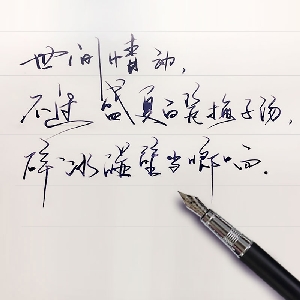 世间情动,
不过盛夏白瓷梅子汤,
碎冰碰壁当啷响.